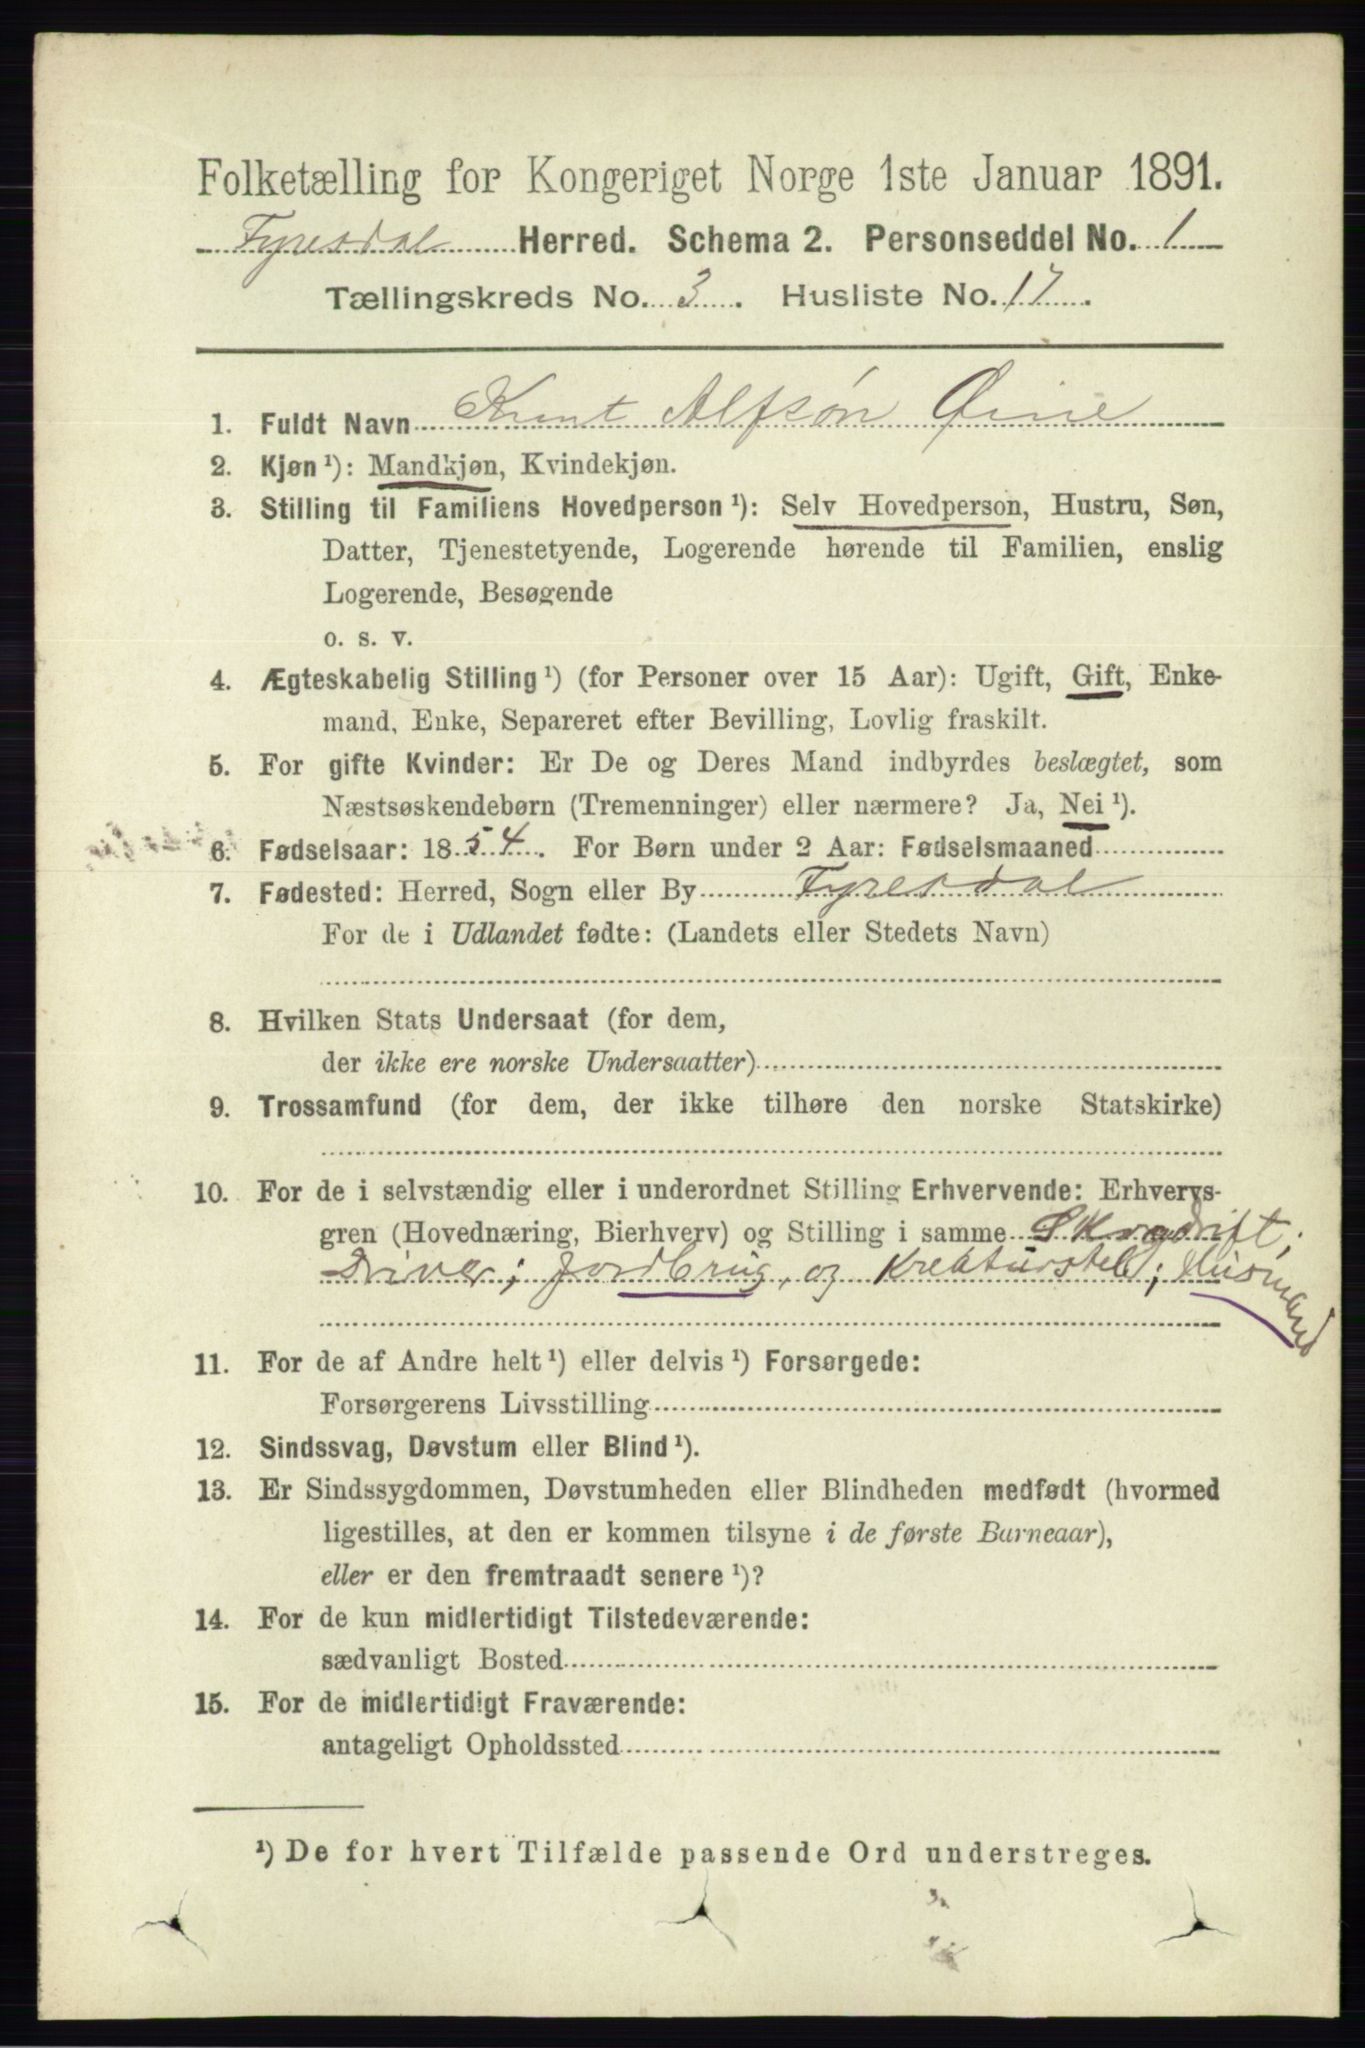 Folketælling for Kongeriget Norge 1ste Januar 1891.
Fyresdal Herred. Schema 2. Personseddel No. 1
Tællingskreds No. 3. Husliste No. 17.
1. Fuldt Navn Knut Alfsøn Øine
2. Kjøn ¹): Mandkjøn, Kvindekjøn.
3. Stilling til Familiens Hovedperson ¹): Selv Hovedperson, Hustru, Søn,
Datter, Tjenestetyende, Logerende hørende til Familien, enslig
Logerende, Besøgende
o. s. v.
4. Ægteskabelig Stilling ¹) (for Personer over 15 Aar): Ugift, Gift, Enke-
mand, Enke, Separeret efter Bevilling, Lovlig fraskilt.
5. For gifte Kvinder: Er De og Deres Mand indbyrdes beslægtet, som
Næstsøskendebørn (Tremenninger) eller nærmere? Ja, Nei ¹).
6. Fødselsaar: 1854. For Børn under 2 Aar: Fødselsmaaned
7. Fødested: Herred, Sogn eller By Fyresdal
For de i Udlandet fødte: (Landets eller Stedets Navn)
8. Hvilken Stats Undersaat (for dem,
der ikke ere norske Undersaatter)
9. Trossamfund (for dem, der ikke tilhøre den norske Statskirke)
10. For de i selvstændig eller i underordnet Stilling Erhvervende: Erhvervs-
gren (Hovednæring, Bierhverv) og Stilling i samme Skogdrift,
Driver; Jordbrug, og Kreaturstel; Husmand
11. For de af Andre helt ¹) eller delvis ¹) Forsørgede:
Forsørgerens Livsstilling
12. Sindssvag, Døvstum eller Blind ¹).
13. Er Sindssygdommen, Døvstumheden eller Blindheden medfødt (hvormed
ligestilles, at den er kommen tilsyne i de første Barneaar),
eller er den fremtraadt senere ¹)?
14. For de kun midlertidigt Tilstedeværende:
sædvanligt Bosted
15. For de midlertidigt Fraværende:
antageligt Opholdssted
¹) De for hvert Tilfælde passende Ord understreges.